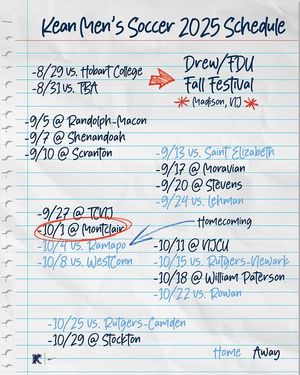 Kean Men's Soccer 2025 Schedule
-8/29 vs. Hobart College
-8/31 vs. TBA
Drew/FDU
Fall Festival
*Madison, NJ*
-9/5 @ Randolph-Macon
-9/7 @ Shenandoah
-9/10 @ Scranton
-9/13 vs. Saint Elizabeth
-9/17 @ Moravian
-9/20 @ Stevens
-9/24 vs. Lehman
-9/27 @ TCNJ
-10/1 @ Montclair
-10/4 vs. Ramapo
-10/8 vs. WestConn
Homecoming
-10/11 @ NJCU
-10/15 vs. Rutgers-Newark
-10/18 @ William Paterson
-10/22 vs. Rowan
-10/25 vs. Rutgers-Camden
-10/29 @ Stockton
Home Away